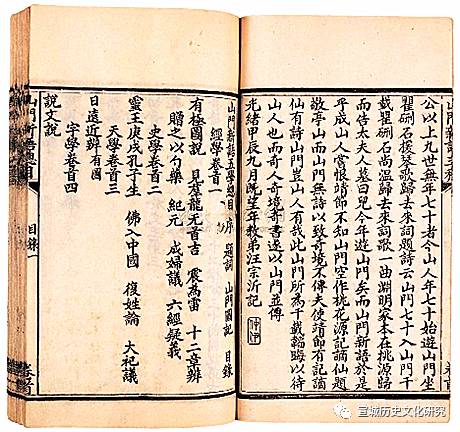 公以上九世無年七十者今山人年七十始遊山門坐
瞿硎石援琴歌歸去來詞題詩云山門七十入山門千
載瞿硎石尚溫歸去來詞歌一曲淵明家本在桃源歸
而告太夫人墓曰兒今年遊山門矣而山門新語於是
乎成山人嘗恨靖節不知山門空作桃花源記謫仙題
敬亭山而山門無詩以致奇境不傳夫使靖節有記謫
仙有詩山門豈山人有哉此山門所為千載韜晦以待
山人也而奇人奇境奇書遂以山門並傳
光緒甲辰九月既望年教弟汪宗沂記
山門新語五學總目 序 題詞 山門圖記 目錄
經學卷首一
有極圖說 見羣龍无首吉 震為雷 十二章辨
贈之以勺藥 紀元 成婦議 六經疑義
史學卷首二
靈王庚戌孔子生 佛入中國 復姓論 大祀議
天學卷首三
日遠近辨有圖
字學卷首四
說文說
山門新語總目 目錄一 卷首
宣城历史文化研究